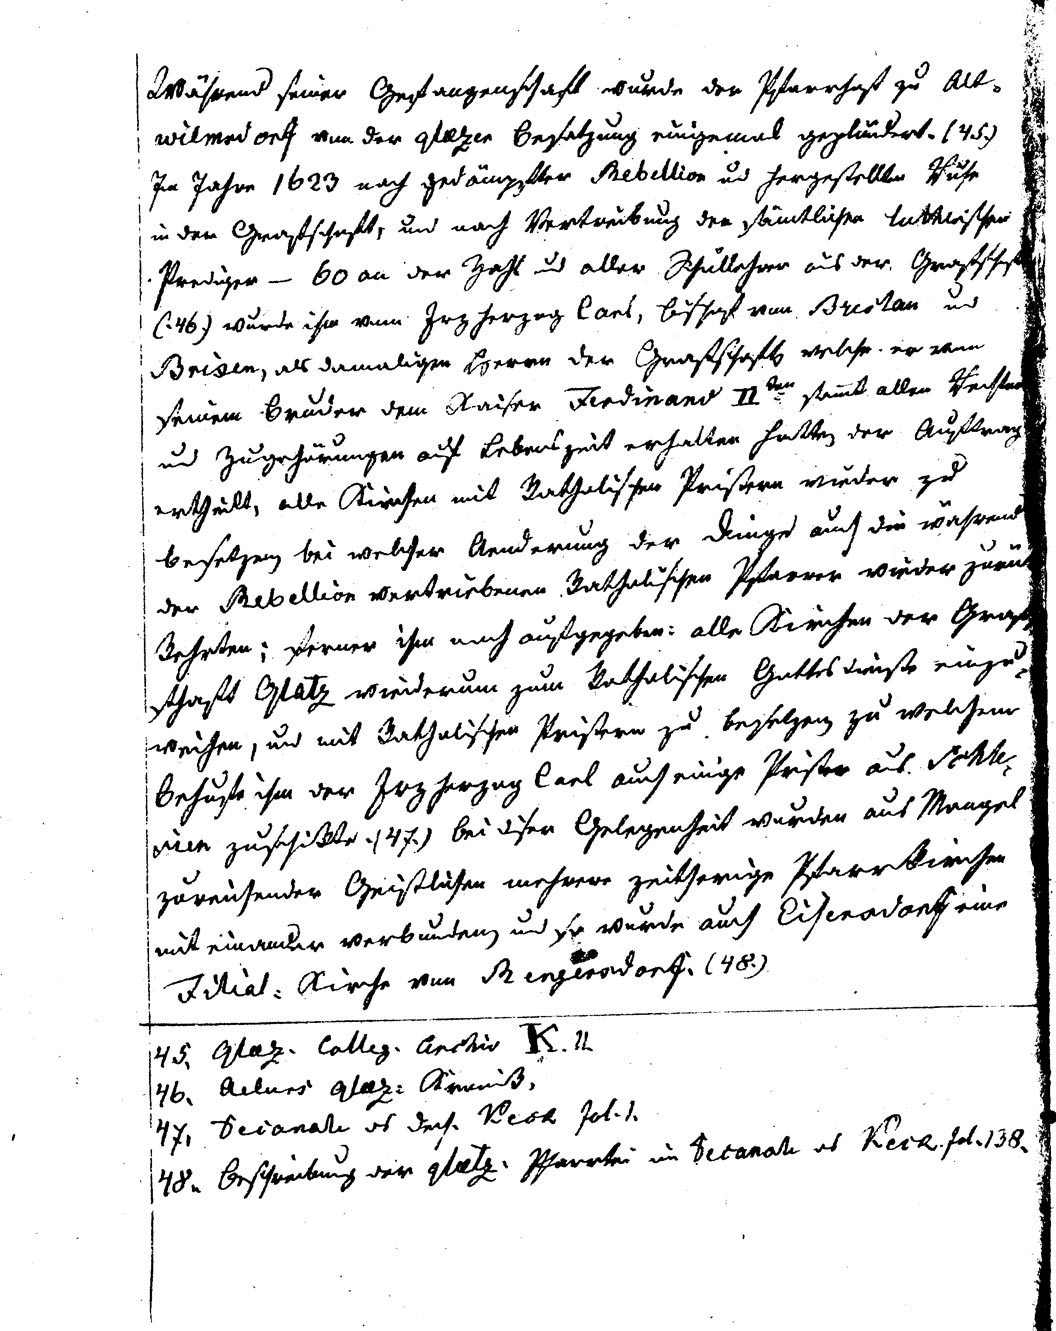 Während seiner Gefangenschaft wurde der Pfarrhof zu Alt-
wilmsdorf von der glazer Besatzung einigemal geplündert. (45.)
Im Jahre 1623 nach gedämpfter Rebellion und hergestellter Ruhe
in der Grafschaft, und nach Vertreibung der sämtlichen lutherischen
Prediger — 60 an der Zahl und aller Schullehrer aus der Grafschaft
(:46.) wurde ihm vom Erzherzog Carl, Bischof von Breslau und
Brixen, als damaligen Herrn der Grafschaft, welche er von
seinem Bruder dem Kaiser Ferdinand II ten sammt allen Rechten
und Zugehörungen auf Lebenszeit erhalten hatte, der Auftrag
ertheilt, alle Kirchen mit katholischen Pristern wieder zu
besetzen, bei welcher Aenderung der Dinge auch die während
der Rebellion vertriebenen katholischen Pfarrer wieder zurük
kehrten; ferner ihm noch aufgegeben: alle Kirchen der Graf-
schaft Glatz wiederum zum katholischen Gottesdienste einzu-
weihen, und mit katholischen Pristern zu besetzen, zu welchem
Behufe ihm der Erzherzog Carl auch einige Prister aus Schle-
sien zuschikte. (47.) Bei diser Gelegenheit wurden aus Mangel
zureichender Geistlichen mehrere zeitherige Pfarrkirchen
mit einander verbunden, und so wurde auch Eisersdorf eine
Filial: Kirche von Rengersdorf. (48.)
45. Glaz. Colleg. Archiv K. 11
46. Aelurs glaz: Kronik,
47. Decanats Keck fol. 1.
48. Beschreibung der glatz. Pfarrtei im Decanats Keck fol. 138.